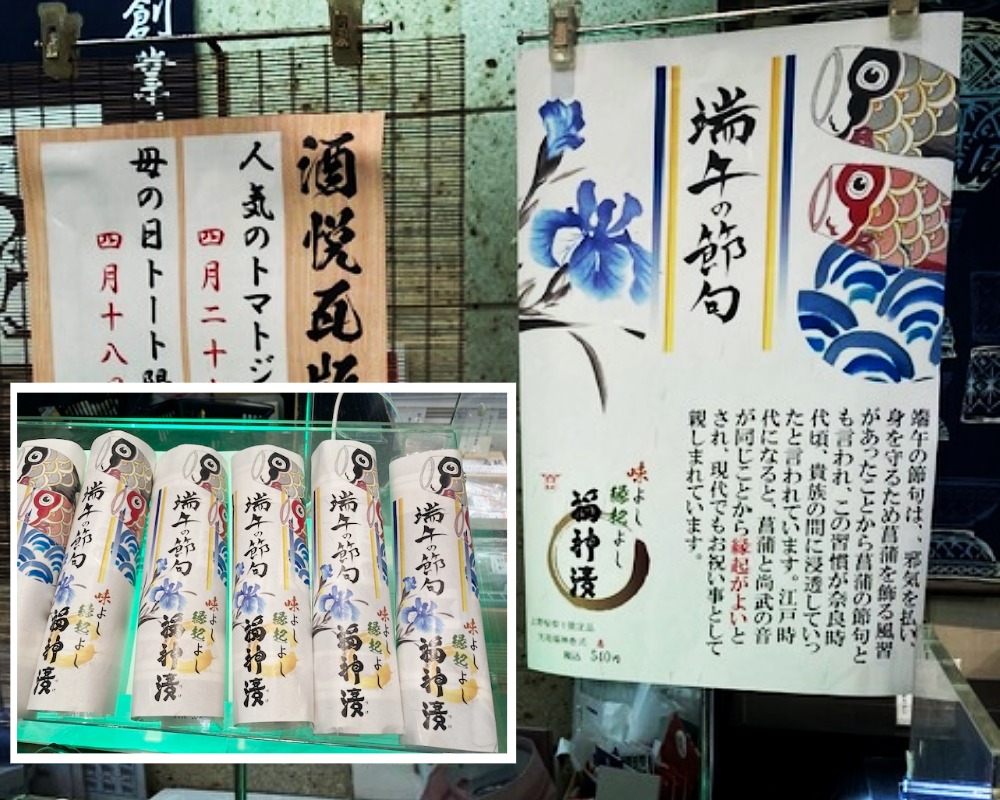 創業
酒悦瓦版
人気のトマトジ
四月二十
母の日トート限
四月十八日
端午の節句
端午の節句は、邪気を払い、
身を守るため菖蒲を飾る風習
があったことから菖蒲の節句と
も言われ、この習慣が奈良時
代頃、貴族の間に浸透していっ
たと言われています。江戸時
代になると、菖蒲と尚武の音
が同じことから縁起がよいと
され、現代でもお祝い事として
親しまれています。
味よし
縁起よし
福神漬
税込 540円
端午の節句
福神漬
端午の節句
味よし
縁起よし
福神漬
端午の節句
味よし
縁起よし
福神漬
端午の節句
味よし
縁起よし
福神漬
端午の節句
味よし
縁起よし
福神漬